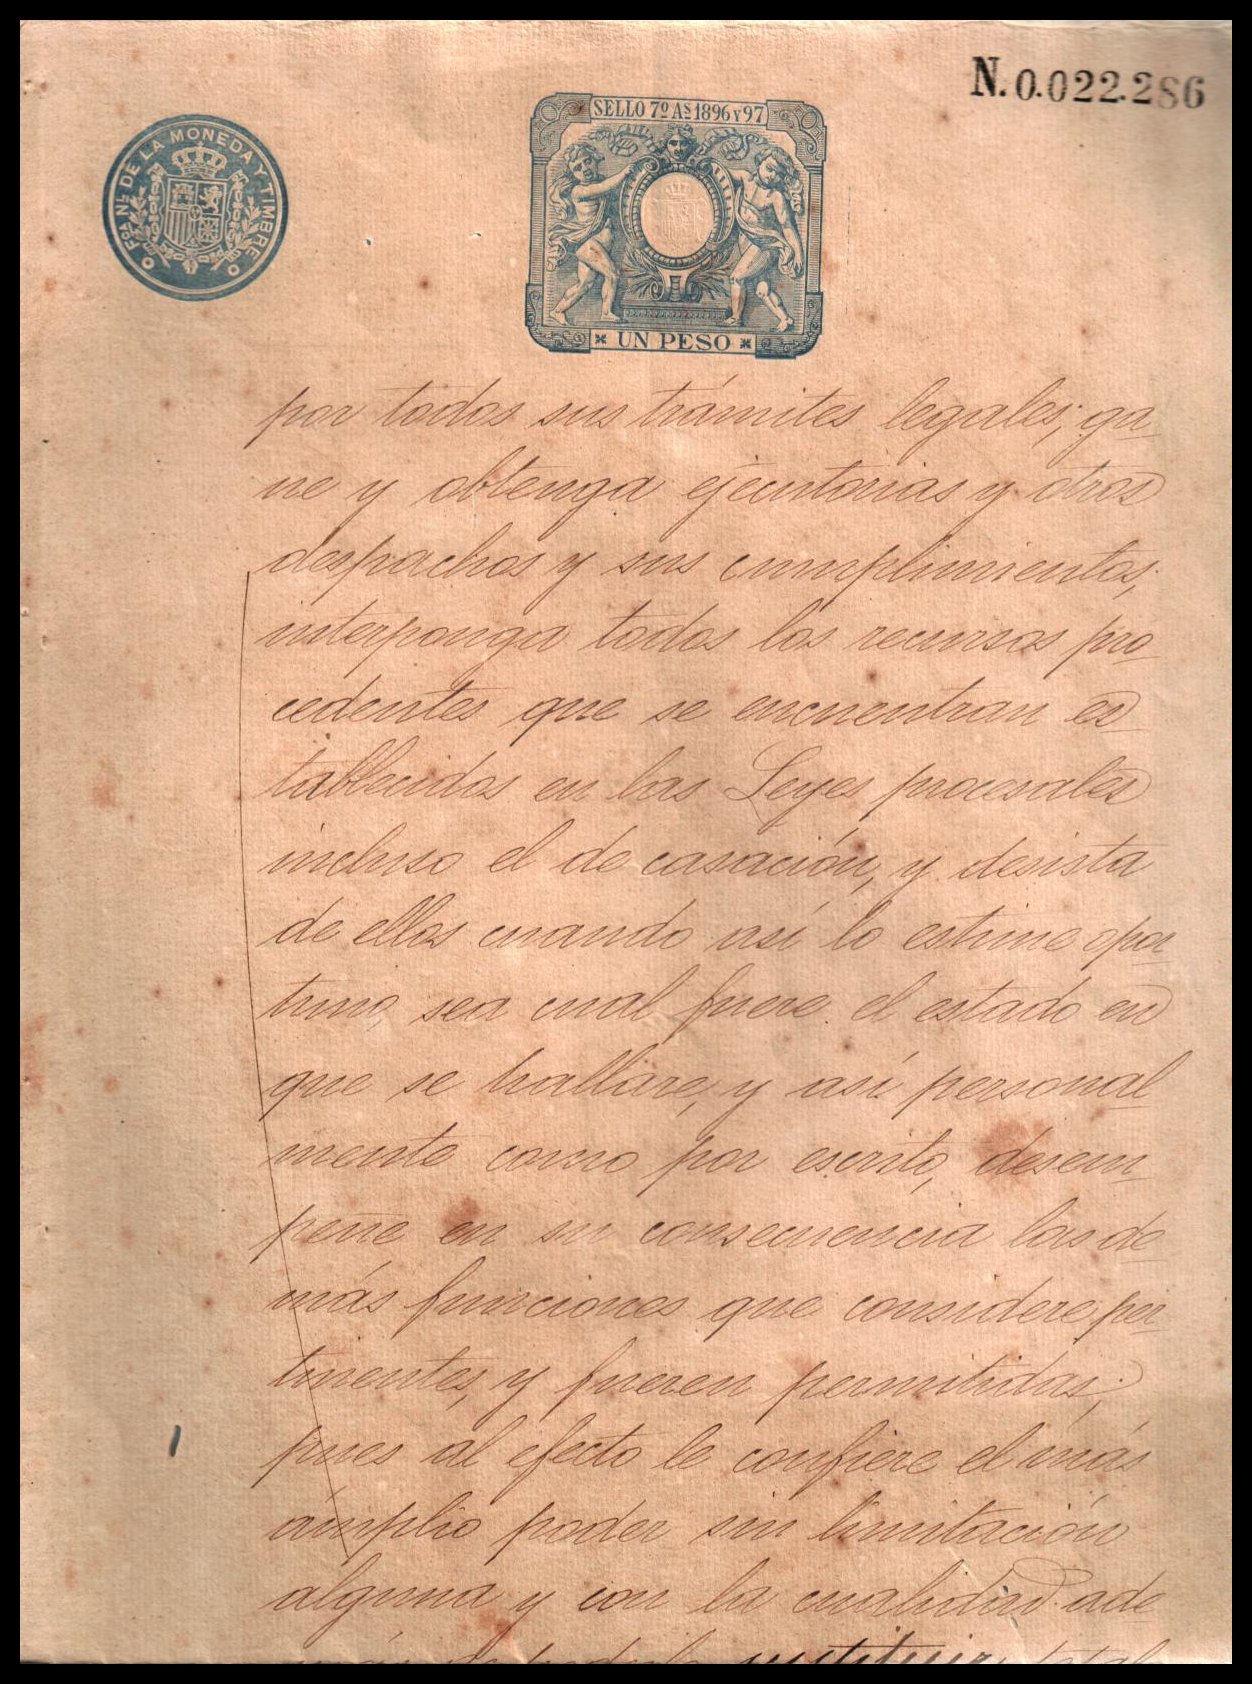 N. 0.022.286
SELLO 7º As 1896 y 97
Fca Nl DE LA MONEDA Y TIMBRE
UN PESO
por todos sus trámites legales; ga
ne y obtenga ejecutorias y otros
despachos y sus cumplimientos,
interponga todos los recursos pro
cedentes que se encuentran es
tablecidos en las Leyes procesales
incluso el de casación, y desista
de ellos cuando así lo estime opor
tuno, sea cual fuere el estado en
que se hallare, y así personal
mente como por escrito, desem
peñe en su consecuencia las de
más funciones que considere per
tinentes, y fueren permitidas;
pues al efecto le confiere el más
ámplio poder sin limitación
alguna y con la cualidad ade
más de poderlo sustituir total